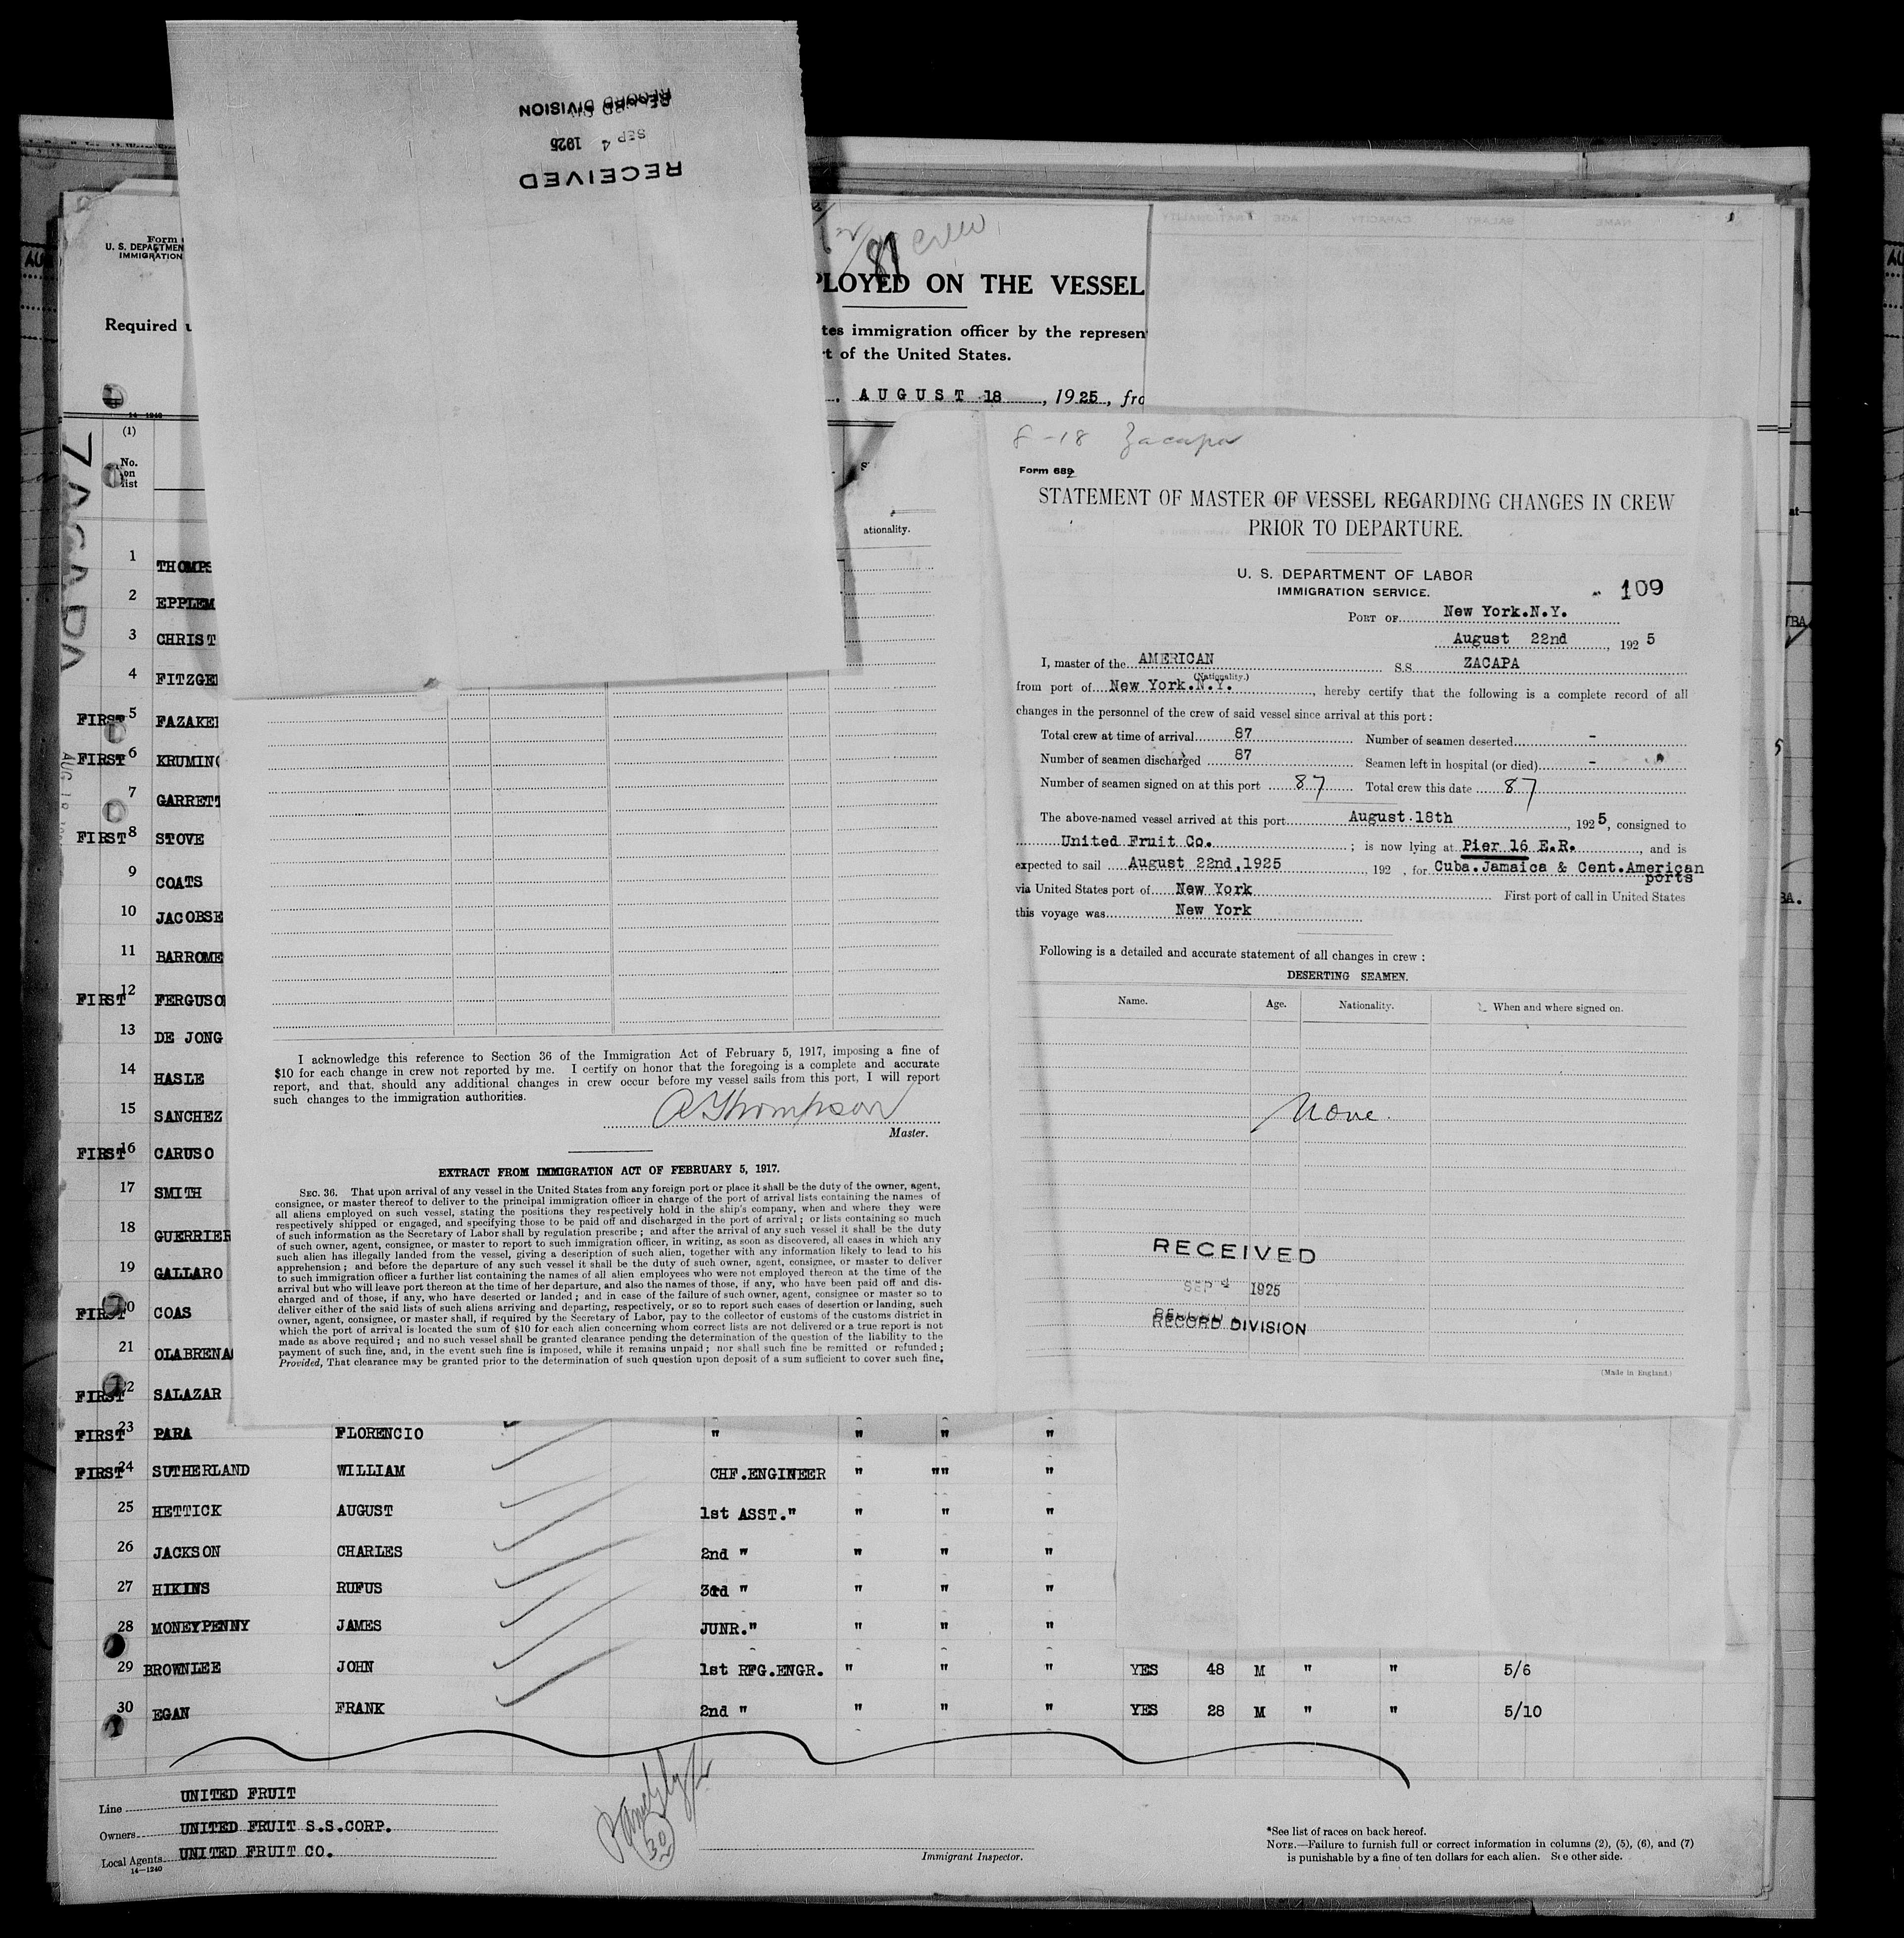 RECORD DIVISION
SEP 4 1925
RECEIVED
87 Crew
PLOYED ON THE VESSEL
tes immigration officer by the represen
t of the United States.
AUGUST 18, 1925, fro
U. S. DEPARTMEN
IMMIGRATION
Required u
14-1240
(1)
No.
on
list
ZACAPA
ationality.
1 THOMPS
2 EPPLEM
3 CHRIST
4 FITZGE
FIRST 5 FAZAKE
FIRST 6 KRUMIN
7 GARRET
FIRST 8 STOVE
9 COATS
10 JACOBSE
11 BARROME
FIRST 12 FERGUSO
13 DE JONG
14 HASLE
15 SANCHEZ
FIRST 16 CARUSO
17 SMITH
18 GUERRIER
19 GALLARO
FIRST 20 COAS
21 OLABRENA
FIRST 22 SALAZAR
FIRST 23 PARA FLORENCIO " " " "
FIRST 24 SUTHERLAND WILLIAM CHF.ENGINEER " "" "
25 HETTICK AUGUST 1st ASST." " " "
26 JACKSON CHARLES 2nd " " " "
27 HIKINS RUFUS 3rd " " " "
28 MONEYPENNY JAMES JUNR." " " "
29 BROWNLEE JOHN 1st RFG.ENGR. " " " YES 48 M " " 5/6
30 EGAN FRANK 2nd " " " " YES 28 M " " 5/10
Line UNITED FRUIT
Owners UNITED FRUIT S.S.CORP.
Local Agents UNITED FRUIT CO.
14-1240
30
Immigrant Inspector.
*See list of races on back hereof.
NOTE.—Failure to furnish full or correct information in columns (2), (5), (6), and (7)
is punishable by a fine of ten dollars for each alien. See other side.
I acknowledge this reference to Section 36 of the Immigration Act of February 5, 1917, imposing a fine of
$10 for each change in crew not reported by me. I certify on honor that the foregoing is a complete and accurate
report, and that, should any additional changes in crew occur before my vessel sails from this port, I will report
such changes to the immigration authorities.
A Thompson
Master.
EXTRACT FROM IMMIGRATION ACT OF FEBRUARY 5, 1917.
SEC. 36. That upon arrival of any vessel in the United States from any foreign port or place it shall be the duty of the owner, agent,
consignee, or master thereof to deliver to the principal immigration officer in charge of the port of arrival lists containing the names of
all aliens employed on such vessel, stating the positions they respectively hold in the ship's company, when and where they were
respectively shipped or engaged, and specifying those to be paid off and discharged in the port of arrival; or lists containing so much
of such information as the Secretary of Labor shall by regulation prescribe; and after the arrival of any such vessel it shall be the duty
of such owner, agent, consignee, or master to report to such immigration officer, in writing, as soon as discovered, all cases in which any
such alien has illegally landed from the vessel, giving a description of such alien, together with any information likely to lead to his
apprehension; and before the departure of any such vessel it shall be the duty of such owner, agent, consignee, or master to deliver
to such immigration officer a further list containing the names of all alien employees who were not employed thereon at the time of the
arrival but who will leave port thereon at the time of her departure, and also the names of those, if any, who have been paid off and dis-
charged and of those, if any, who have deserted or landed; and in case of the failure of such owner, agent, consignee or master so to
deliver either of the said lists of such aliens arriving and departing, respectively, or so to report such cases of desertion or landing, such
owner, agent, consignee, or master shall, if required by the Secretary of Labor, pay to the collector of customs of the customs district in
which the port of arrival is located the sum of $10 for each alien concerning whom correct lists are not delivered or a true report is not
made as above required; and no such vessel shall be granted clearance pending the determination of the question of the liability to the
payment of such fine, and, in the event such fine is imposed, while it remains unpaid; nor shall such fine be remitted or refunded;
Provided, That clearance may be granted prior to the determination of such question upon deposit of a sum sufficient to cover such fine,
8-18 Zacapa
Form 689
STATEMENT OF MASTER OF VESSEL REGARDING CHANGES IN CREW
PRIOR TO DEPARTURE.
U. S. DEPARTMENT OF LABOR
IMMIGRATION SERVICE.
109
PORT OF New York.N.Y.
August 22nd, 1925
I, master of the AMERICAN S.S. ZACAPA
(Nationality.)
from port of New York.N.Y., hereby certify that the following is a complete record of all
changes in the personnel of the crew of said vessel since arrival at this port:
Total crew at time of arrival 87 Number of seamen deserted -
Number of seamen discharged 87 Seamen left in hospital (or died) -
Number of seamen signed on at this port 87 Total crew this date 87
The above-named vessel arrived at this port August.18th, 1925, consigned to
United Fruit Co.; is now lying at Pier 16 E.R., and is
expected to sail August 22nd,1925, 192 , for Cuba.Jamaica & Cent.American
ports
via United States port of New York First port of call in United States
this voyage was New York
Following is a detailed and accurate statement of all changes in crew:
DESERTING SEAMEN.
Name. Age. Nationality. When and where signed on.
None.
RECEIVED
SEP 4 1925
RECORD DIVISION
(Made in England.)